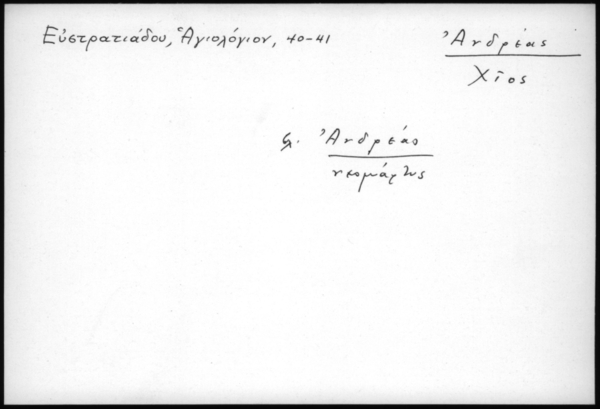 Εὐστρατιάδου, Ἁγιολόγιον, 40-41
Ἀνδρέας
Χῖος
Ἀνδρέας
νεομάρτυς